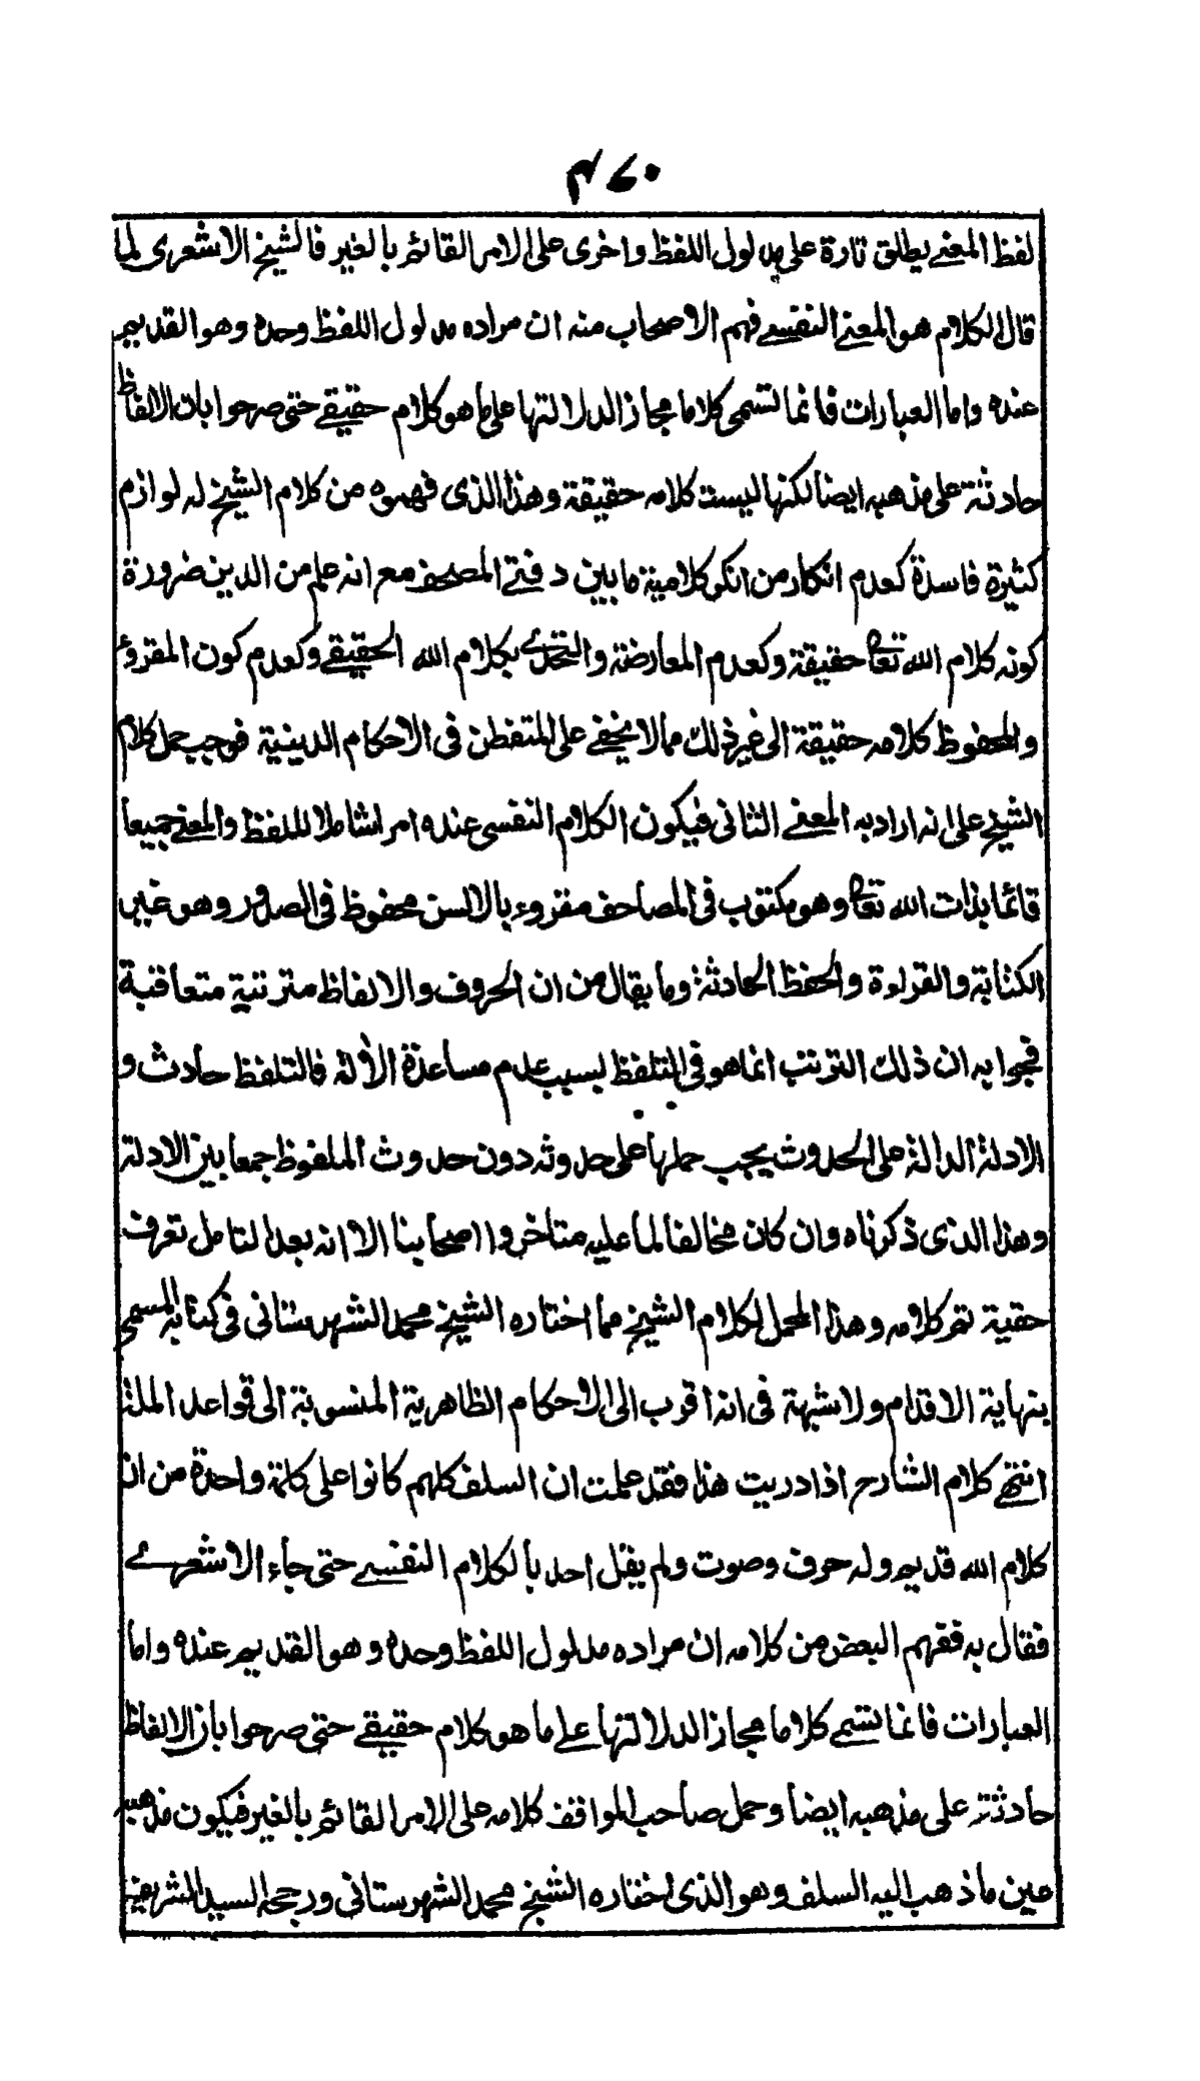 ۴۷۰
لفظ المعنے يطلق تارة على مدلول اللفظ واخرى على الامر القائم بالغير فالشيخ الاشعرى لما
قال الكلام هو المعنے النفسے فهم الاصحاب منه ان مراده مدلول اللفظ وحده وهو القديم
عنده واما العبارات فانما تسمى كلاما مجازا لدلالتها على ما هو كلام حقيقے حتى صرحوا بان الالفاظ
حادثة على مذهبه ايضا لكنها ليست كلامه حقيقة وهذا الذى فهموه من كلام الشيخ له لوازم
كثيرة فاسدة كعدم انكار من انكر كلامية ما بين دفتے المصحف مع انه علم من الدين ضرورة
كونه كلام الله تعالى حقيقة وكعدم المعارضة والتحدے بكلام الله الحقيقے وكعدم كون المقروٴ
والمحفوظ كلامه حقيقة الى غير ذلك مما لا يخفے على المتفطن فى الاحكام الدينية فوجب حمل كلام
الشيخ على انه اراد به المعنے الثانى فيكون الكلام النفسى عنده امرا شاملا للفظ والمعنے جميعا
قائما بذات الله تعالى وهو مكتوب فى المصاحف مقروء بالالسن محفوظ فى الصدور وهو غير
الكتابة والقراءة والحفظ الحادثة وما يقال من ان الحروف والالفاظ مترتبة متعاقبة
فجوابه ان ذلك الترتب انما هو فى التلفظ بسبب عدم مساعدة الآلة فالتلفظ حادث و
الادلة الدالة على الحدوث يجب حملها على حدوثه دون حدوث الملفوظ جمعا بين الادلة
وهذا الذى ذكرناه وان كان مخالفا لما عليه متاخروا اصحابنا الا انه بعد التامل تعرف
حقية تم كلامه وهذا المحمل لكلام الشيخ مما اختاره الشيخ محمد الشهرستانى فى كتابه المسمى
بنهاية الاقدام ولا شبهة فى انه اقرب الى الاحكام الظاهرية المنسوبة الى قواعد الملة
انتهى كلام الشارح اذا دريت هذا فقد علمت ان السلف كلهم كانوا على كلمة واحدة من ان
كلام الله قديم وله حرف وصوت ولم يقل احد بالكلام النفسے حتى جاء الاشعرے
فقال به ففهم البعض من كلامه ان مراده مدلول اللفظ وحده وهو القديم عنده واما
العبارات فانما تسمے كلاما مجازا لدلالتها علے ما هو كلام حقيقے حتى صرحوا بان الالفاظ
حادثة على مذهبه ايضا وحمل صاحب المواقف كلامه على الامر القائم بالغير فيكون مذهبه
عين ما ذهب اليه السلف وهو الذى اختاره الشيخ محمد الشهرستانى ورجحه السيد الشريف